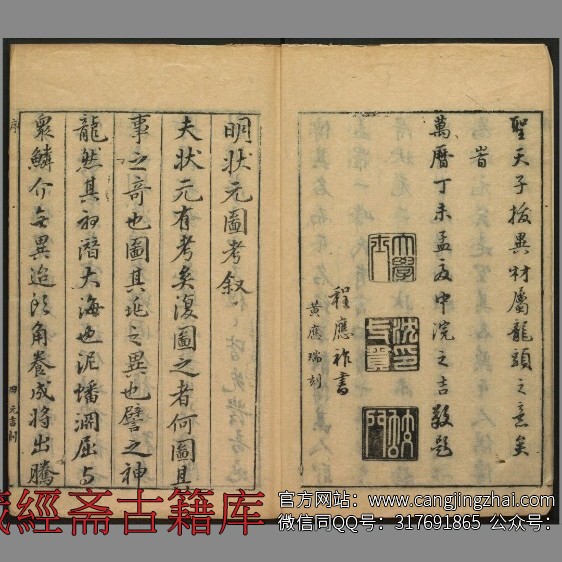 聖天子拔異材屬龍頭之意矣
旹
萬曆丁未孟夏中浣之吉敬題
大學士
程應祚書
黃應瑞刻
明狀元圖考敘
夫狀元有考矣復圖之者何圖其
事之奇也圖其兆之異也譬之神
龍然其初潛大海也泥蟠淵屈与
眾鱗介無異迨頭角養成將出騰
序
四
元吉刻
藏經斋古籍库
官方网站：www.cangjingzhai.com
微信同QQ号：317691865 公众号：